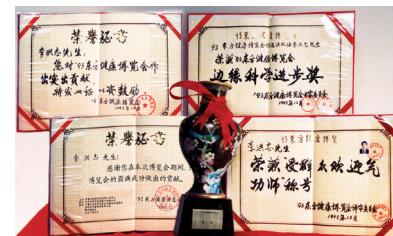 荣誉证书
李洪志先生:
您对'93东方健康博览会作
出突出贡献。
特发此证 以资鼓励
'93东方健康博览会
93东方健康博览会
李洪志先生
荣获'93东方健康博览会
边缘科学进步奖
'93东方健康博览会
1993年12月
荣誉证书
李洪志先生:
感谢您在本次博览会期间,
博览会的圆满成功做出的贡献。
93东方健康博览
李洪志先生:
荣获受群众欢迎气
功师称号
'93东方健康博览会评审委员会
1993年12月